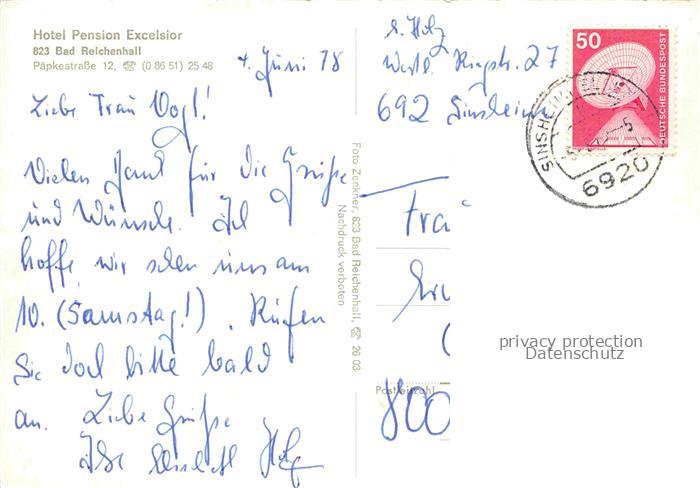 Hotel Pension Excelsior
823 Bad Reichenhall
Päpkestraße 12, ☎ (0 86 51) 25 48
4. Juni 78
Liebe Frau Vogl!
Vielen Dank für die Grüße
und Wünsche. Ich
hoffe wir sehen uns am
10. (Samstag!). Rufen
Sie doch bitte bald
an. Liebe Grüße
Ihre
Foto Zenkner, 823 Bad Reichenhall, ☎ 26 03
Nachdruck verboten
692 Sinsheim
50
DEUTSCHE BUNDESPOST
SINSHEIM
6920
Frau
Postleitzahl
800
privacy protection
Datenschutz